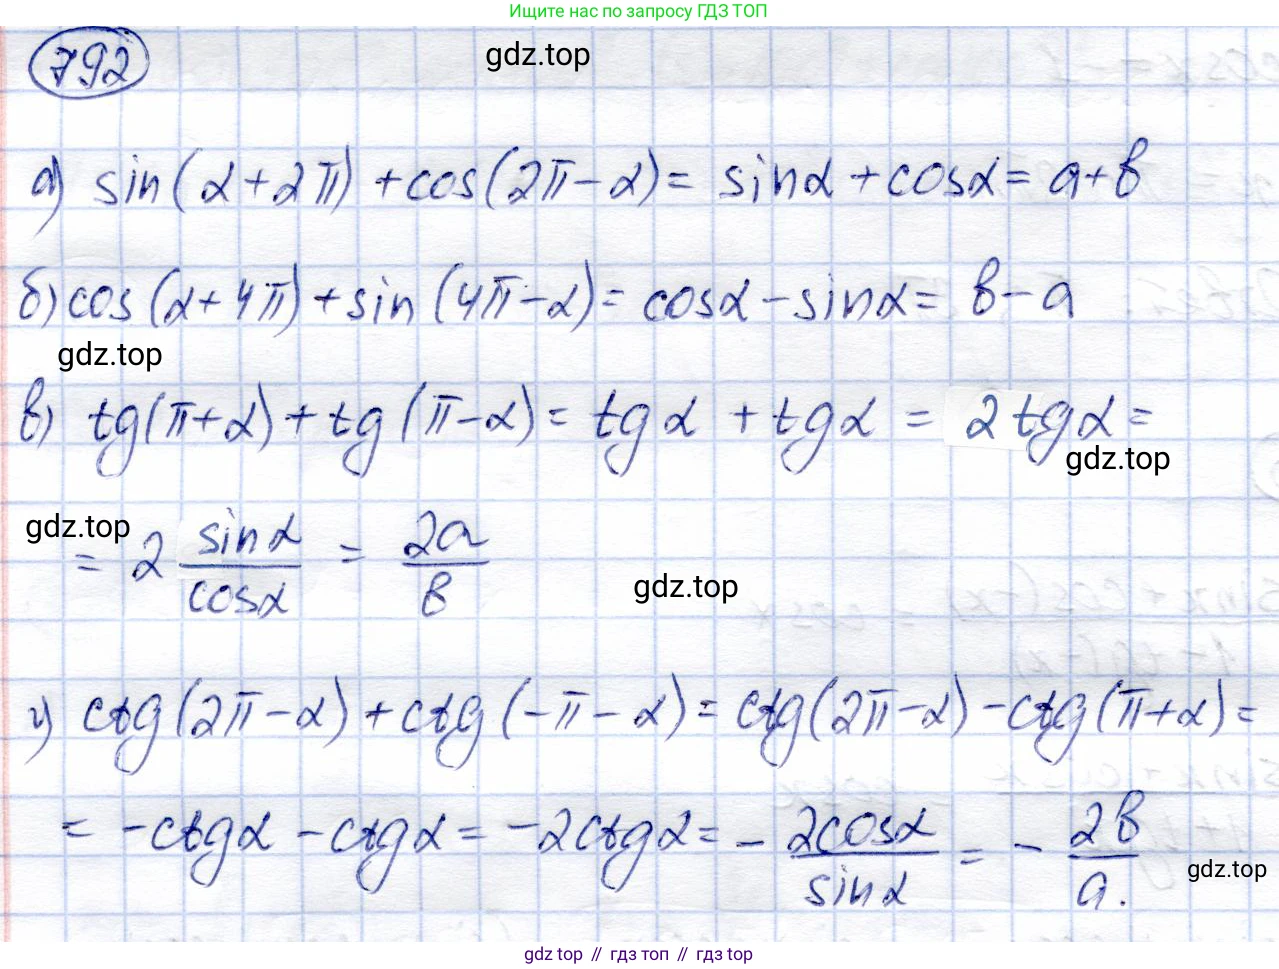 Ищите нас по запросу ГДЗ ТОП
792
gdz.top
а) sin(α+2π)+cos(2π-α)= sinα+cosα= a+b
б) cos(α+4π)+sin(4π-α)= cosα-sinα= b-a
gdz.top
в) tg(π+α)+tg(π-α)= tgα + tgα = 2tgα=
gdz.top
gdz.top
= 2 sinα/cosα = 2a/b
gdz.top
г) ctg(2π-α)+ctg(-π-α)= ctg(2π-α)-ctg(π+α)=
= -ctgα-ctgα= -2ctgα= - 2cosα/sinα = - 2b/a.
gdz.top
gdz top // гдз топ // гдз top